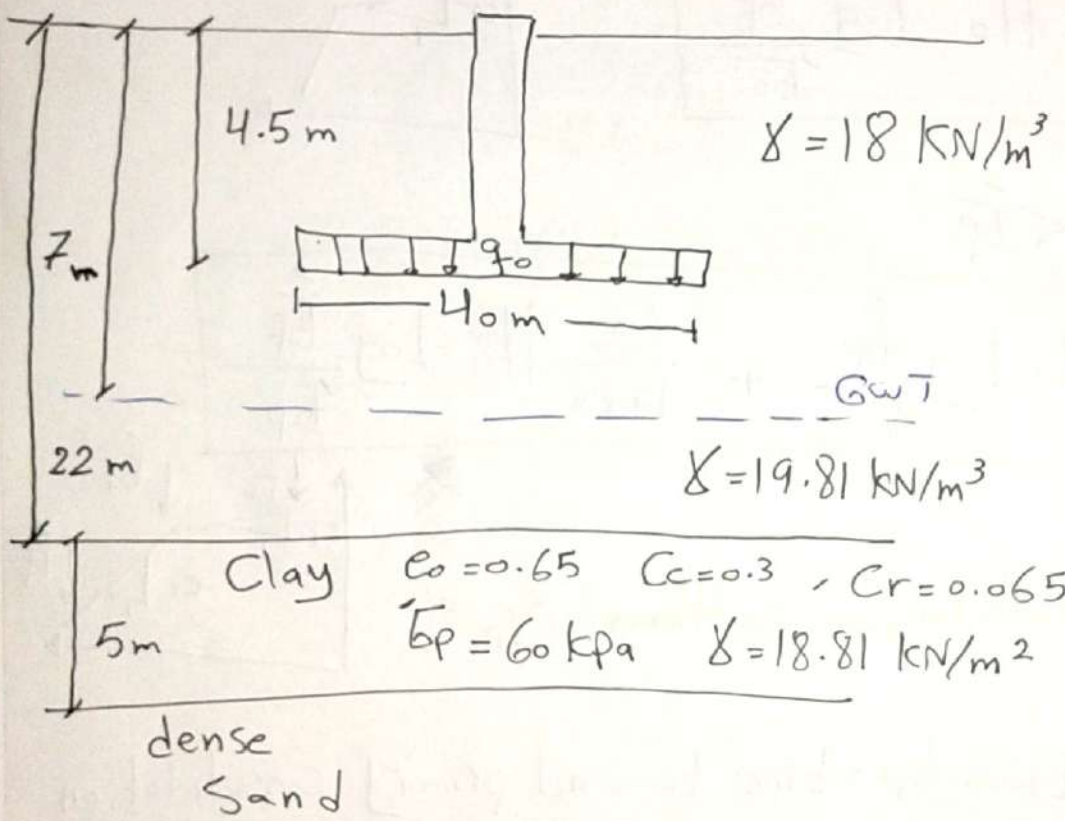 4.5 m
γ = 18 KN/m³
7m
q₀
40m
GWT
22 m
γ = 19.81 kN/m³
Clay e₀ = 0.65 Cc = 0.3 , Cr = 0.065
σ̄p = 60 kpa γ = 18.81 kN/m²
5m
dense
Sand